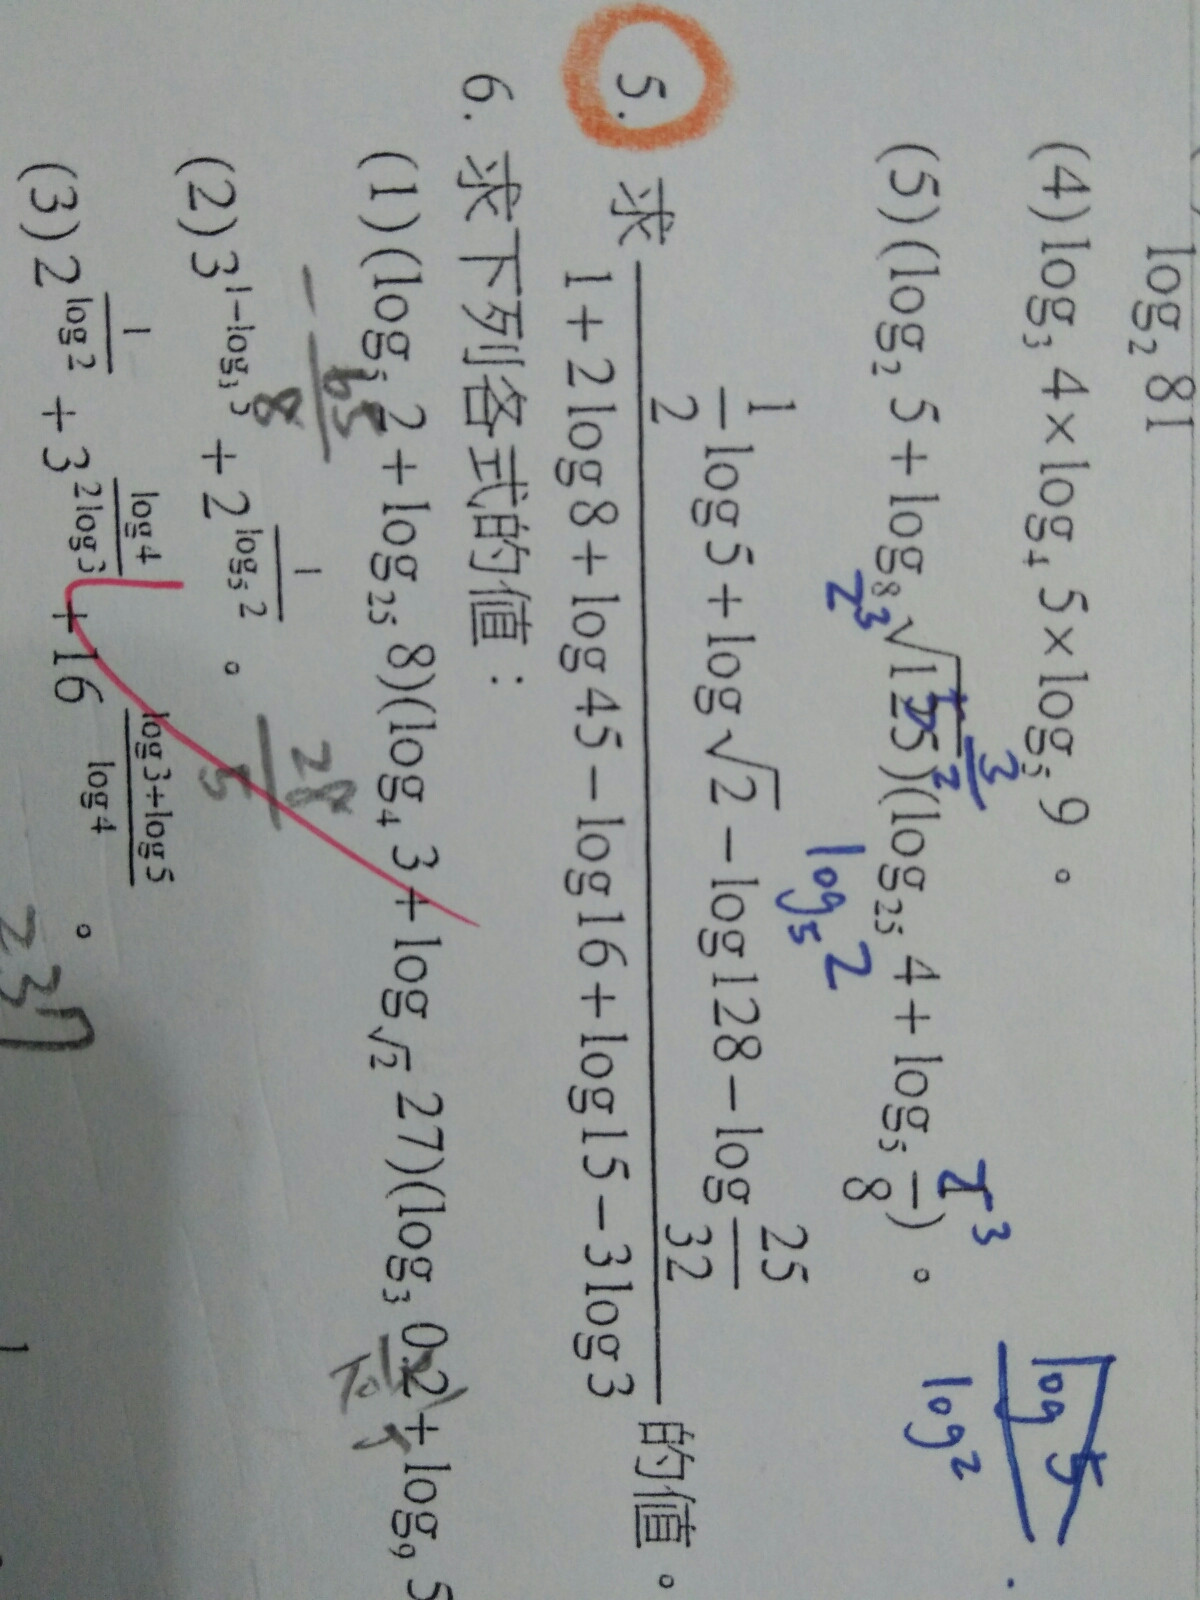 log₂ 81
(4) log₃ 4 × log₄ 5 × log₅ 9 。
(5) (log₂ 5 + log₈ √125)(log₂₅ 4 + log₅ 1/8) 。
2³
3/2
log₅ 2
log 5
log 2
5. 求 (1/2 log 5 + log √2 − log 128 − log 25/32)/(1 + 2 log 8 + log 45 − log 16 + log 15 − 3 log 3) 的值。
6. 求下列各式的值：
(1) (log₅ 2 + log₂₅ 8)(log₄ 3 + log_√2 27)(log₃ 0.2 + log₉ 5
− 65/8
(2) 3^(1−log₃ 5) + 2^(1/log₅ 2) 。
28/5
(3) 2^(1/log 2) + 3^(log 4/2 log 3) + 16^((log 3 + log 5)/log 4) 。
237